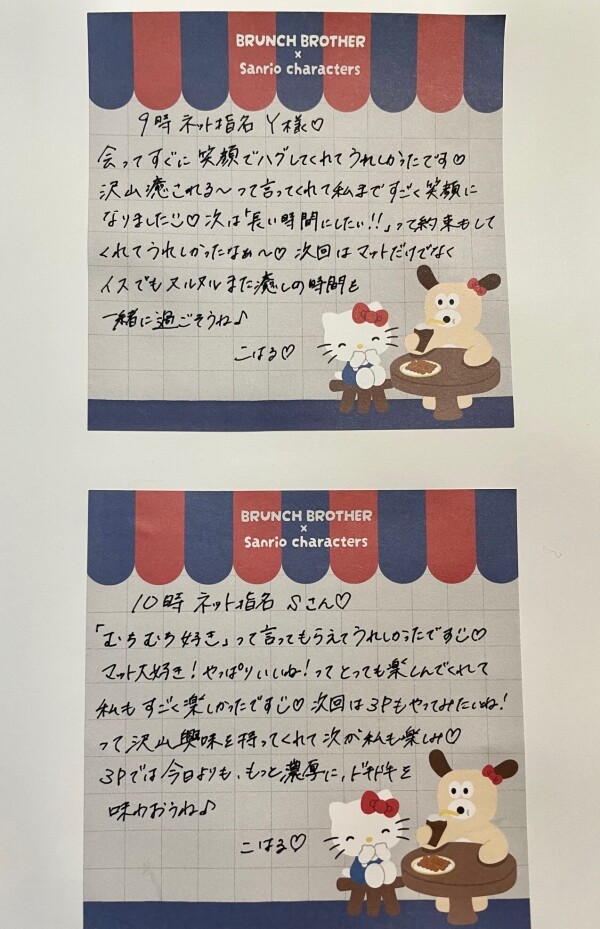 BRUNCH BROTHER
×
Sanrio characters
9時 ネット指名 Y様♡
会ってすぐに 笑顔でハグしてくれてうれしかったです♡
沢山癒される〜って言ってくれて私まですごく笑顔に
なりました♡ 次は「長い時間にしたい!!」って約束もして
くれてうれしかったなぁ〜♡ 次回はマットだけでなく
イスでもヌルヌルまた癒しの時間を
一緒に過ごそうね♪
こはる♡
BRUNCH BROTHER
×
Sanrio characters
10時 ネット指名 Sさん♡
「むちむち好き」って言ってもらえてうれしかったです♡
マット大好き!やっぱりいいね!ってとっても楽しんでくれて
私もすごく楽しかったです♡ 次回は3Pもやってみたいね!
って沢山興味を持ってくれて次が私も楽しみ♡
3Pでは今日よりも、もっと濃厚に、ドキドキを
味わおうね♪
こはる♡